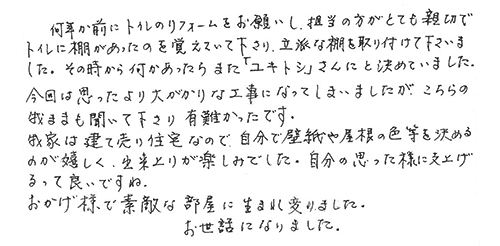 何年か前にトイレのリフォームをお願いし、担当の方がとても親切で
トイレに棚があったのを覚えていて下さり、立派な棚を取り付けて下さいま
した。その時から何かあったらまた「ユキトシ」さんにと決めていました。
今回は思ったより大がかりな工事になってしまいましたが、こちらの
我ままも聞いて下さり有難かったです。
我家は建て売り住宅なので、自分で壁紙や屋根の色等を決める
のが嬉しく、出来上りが楽しみでした。自分の思った様に仕上げ
るって良いですね。
おかげ様で素敵な部屋に生まれ変りました。
お世話になりました。